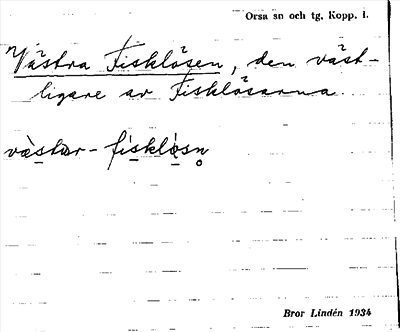 Orsa sn och tg, Kopp. l.
Västra Fisklösen, den väst-
ligare av Fisklösarna.
västər-fisklösn̥
Bror Lindén 1934